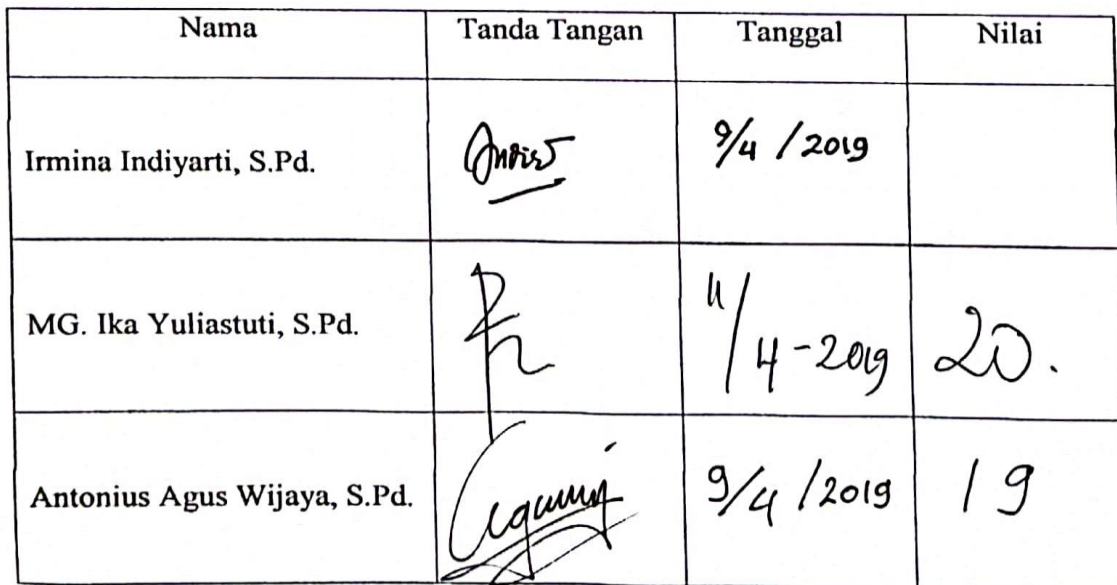 Nama Tanda Tangan Tanggal Nilai
Irmina Indiyarti, S.Pd. 9/4 /2019
MG. Ika Yuliastuti, S.Pd. 11/4-2019 20.
Antonius Agus Wijaya, S.Pd. 9/4 /2019 19